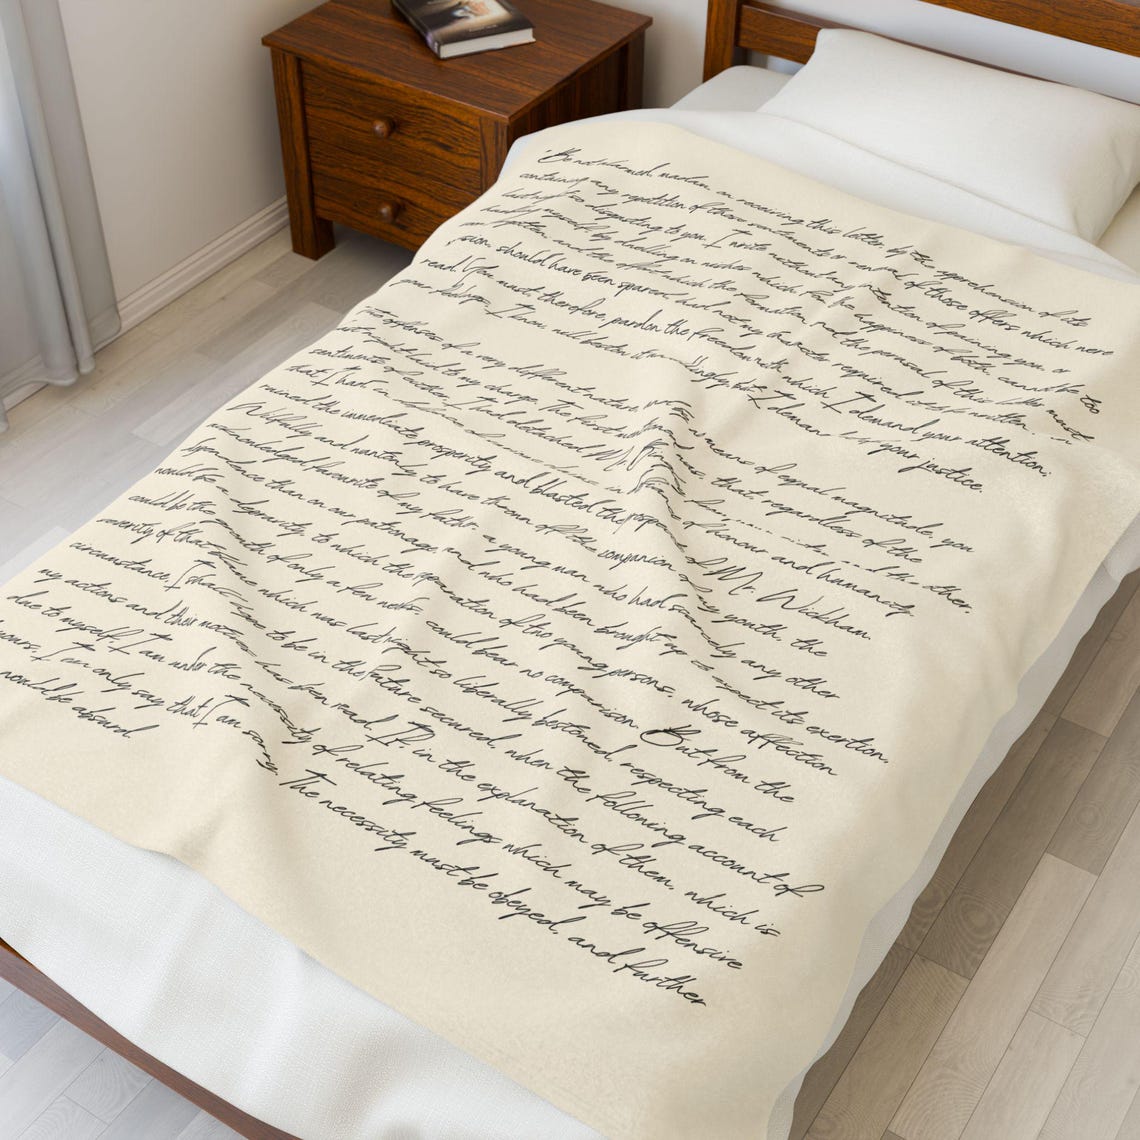 "Be not alarmed, madam, on receiving this letter, by the apprehension of its
containing any repetition of those sentiments or renewal of those offers which were
last night so disgusting to you. I write without any intention of paining you, or
humbling myself, by dwelling on wishes which, for the happiness of both, cannot be too
soon forgotten; and the effort which the formation and the perusal of this letter must
should have been spared, had not my character required it to be written
read. You must, therefore, pardon the freedom with which I demand your attention;
your feelings, I know, will bestow it unwillingly, but I demand it of your justice.
offenses of a very different nature, means of equal magnitude, you
last night laid to my charge. The first was, that, regardless of the
sentiments of either, I had detached Mr. and the other,
that I had, in of honour and humanity,
ruined the immediate prosperity and blasted the prospects of Mr. Wickham.
Wilfully and wantonly to have thrown off the companion of my youth, the
acknowledged favourite of my father, a young man who had scarcely any other
dependence than on our patronage, and who had been brought up to expect its exertion,
would be a depravity, to which the separation of two young persons, whose affection
could be the growth of only a few weeks, could bear no comparison. But from the
severity of that blame which was last night so liberally bestowed, respecting each
circumstance, I shall hope to be in the future secured, when the following account of
my actions and their motives has been read. If, in the explanation of them, which is
due to myself, I am under the necessity of relating feelings which may be offensive
yours, I can only say that I am sorry. The necessity must be obeyed, and further
would be absurd.